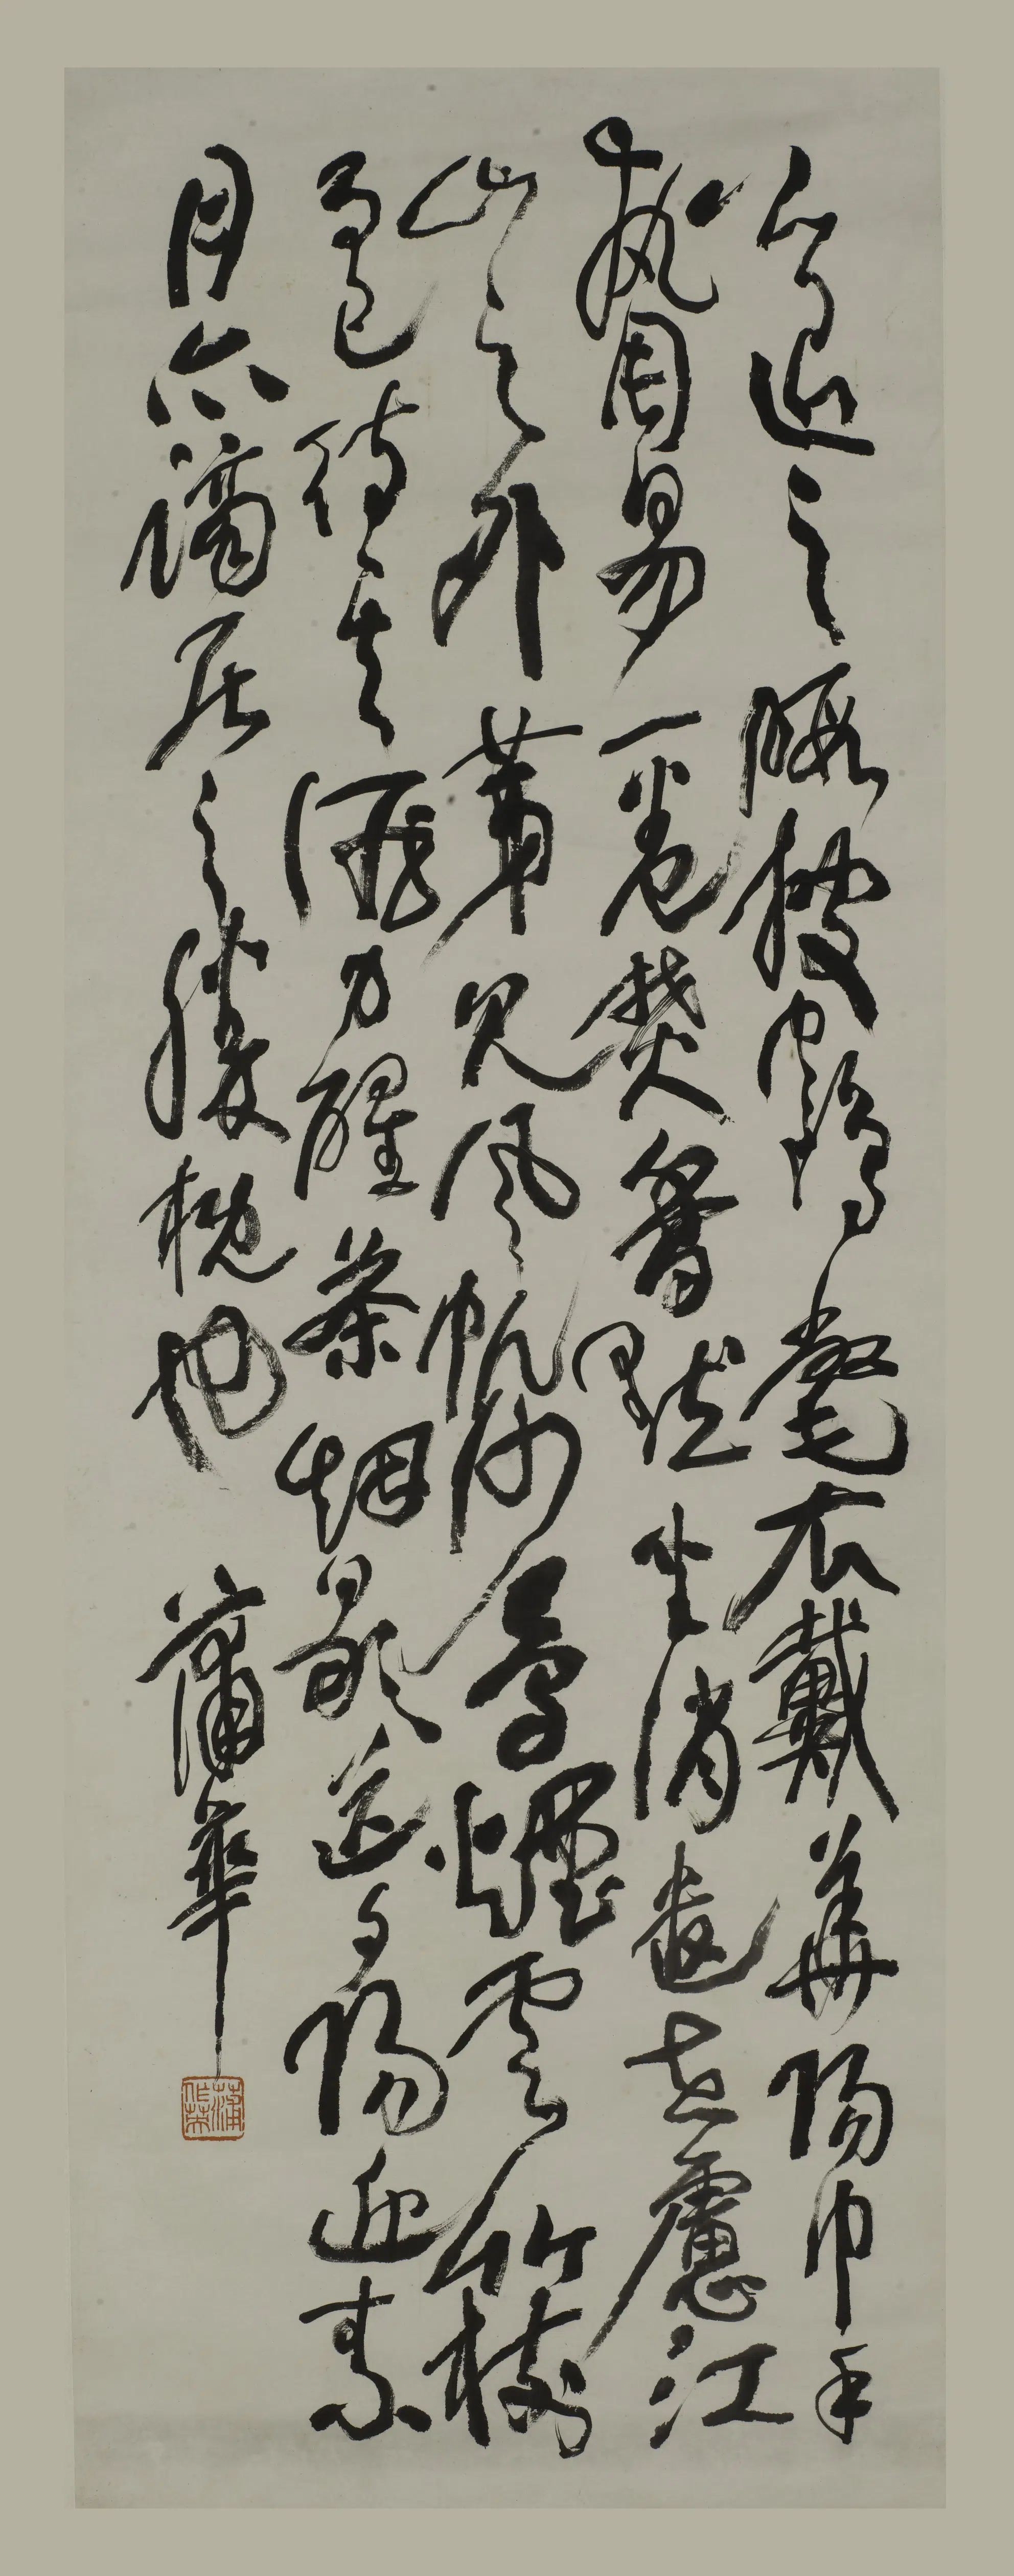 公退之暇披鶴氅衣戴華陽巾手
執周易一卷焚香默坐消遣世慮江
山之外第見風帆沙鳥煙雲竹樹
而已待其酒力醒茶烟歇送夕陽迎素
月亦謫居之勝概也 蒲華
蒲作英